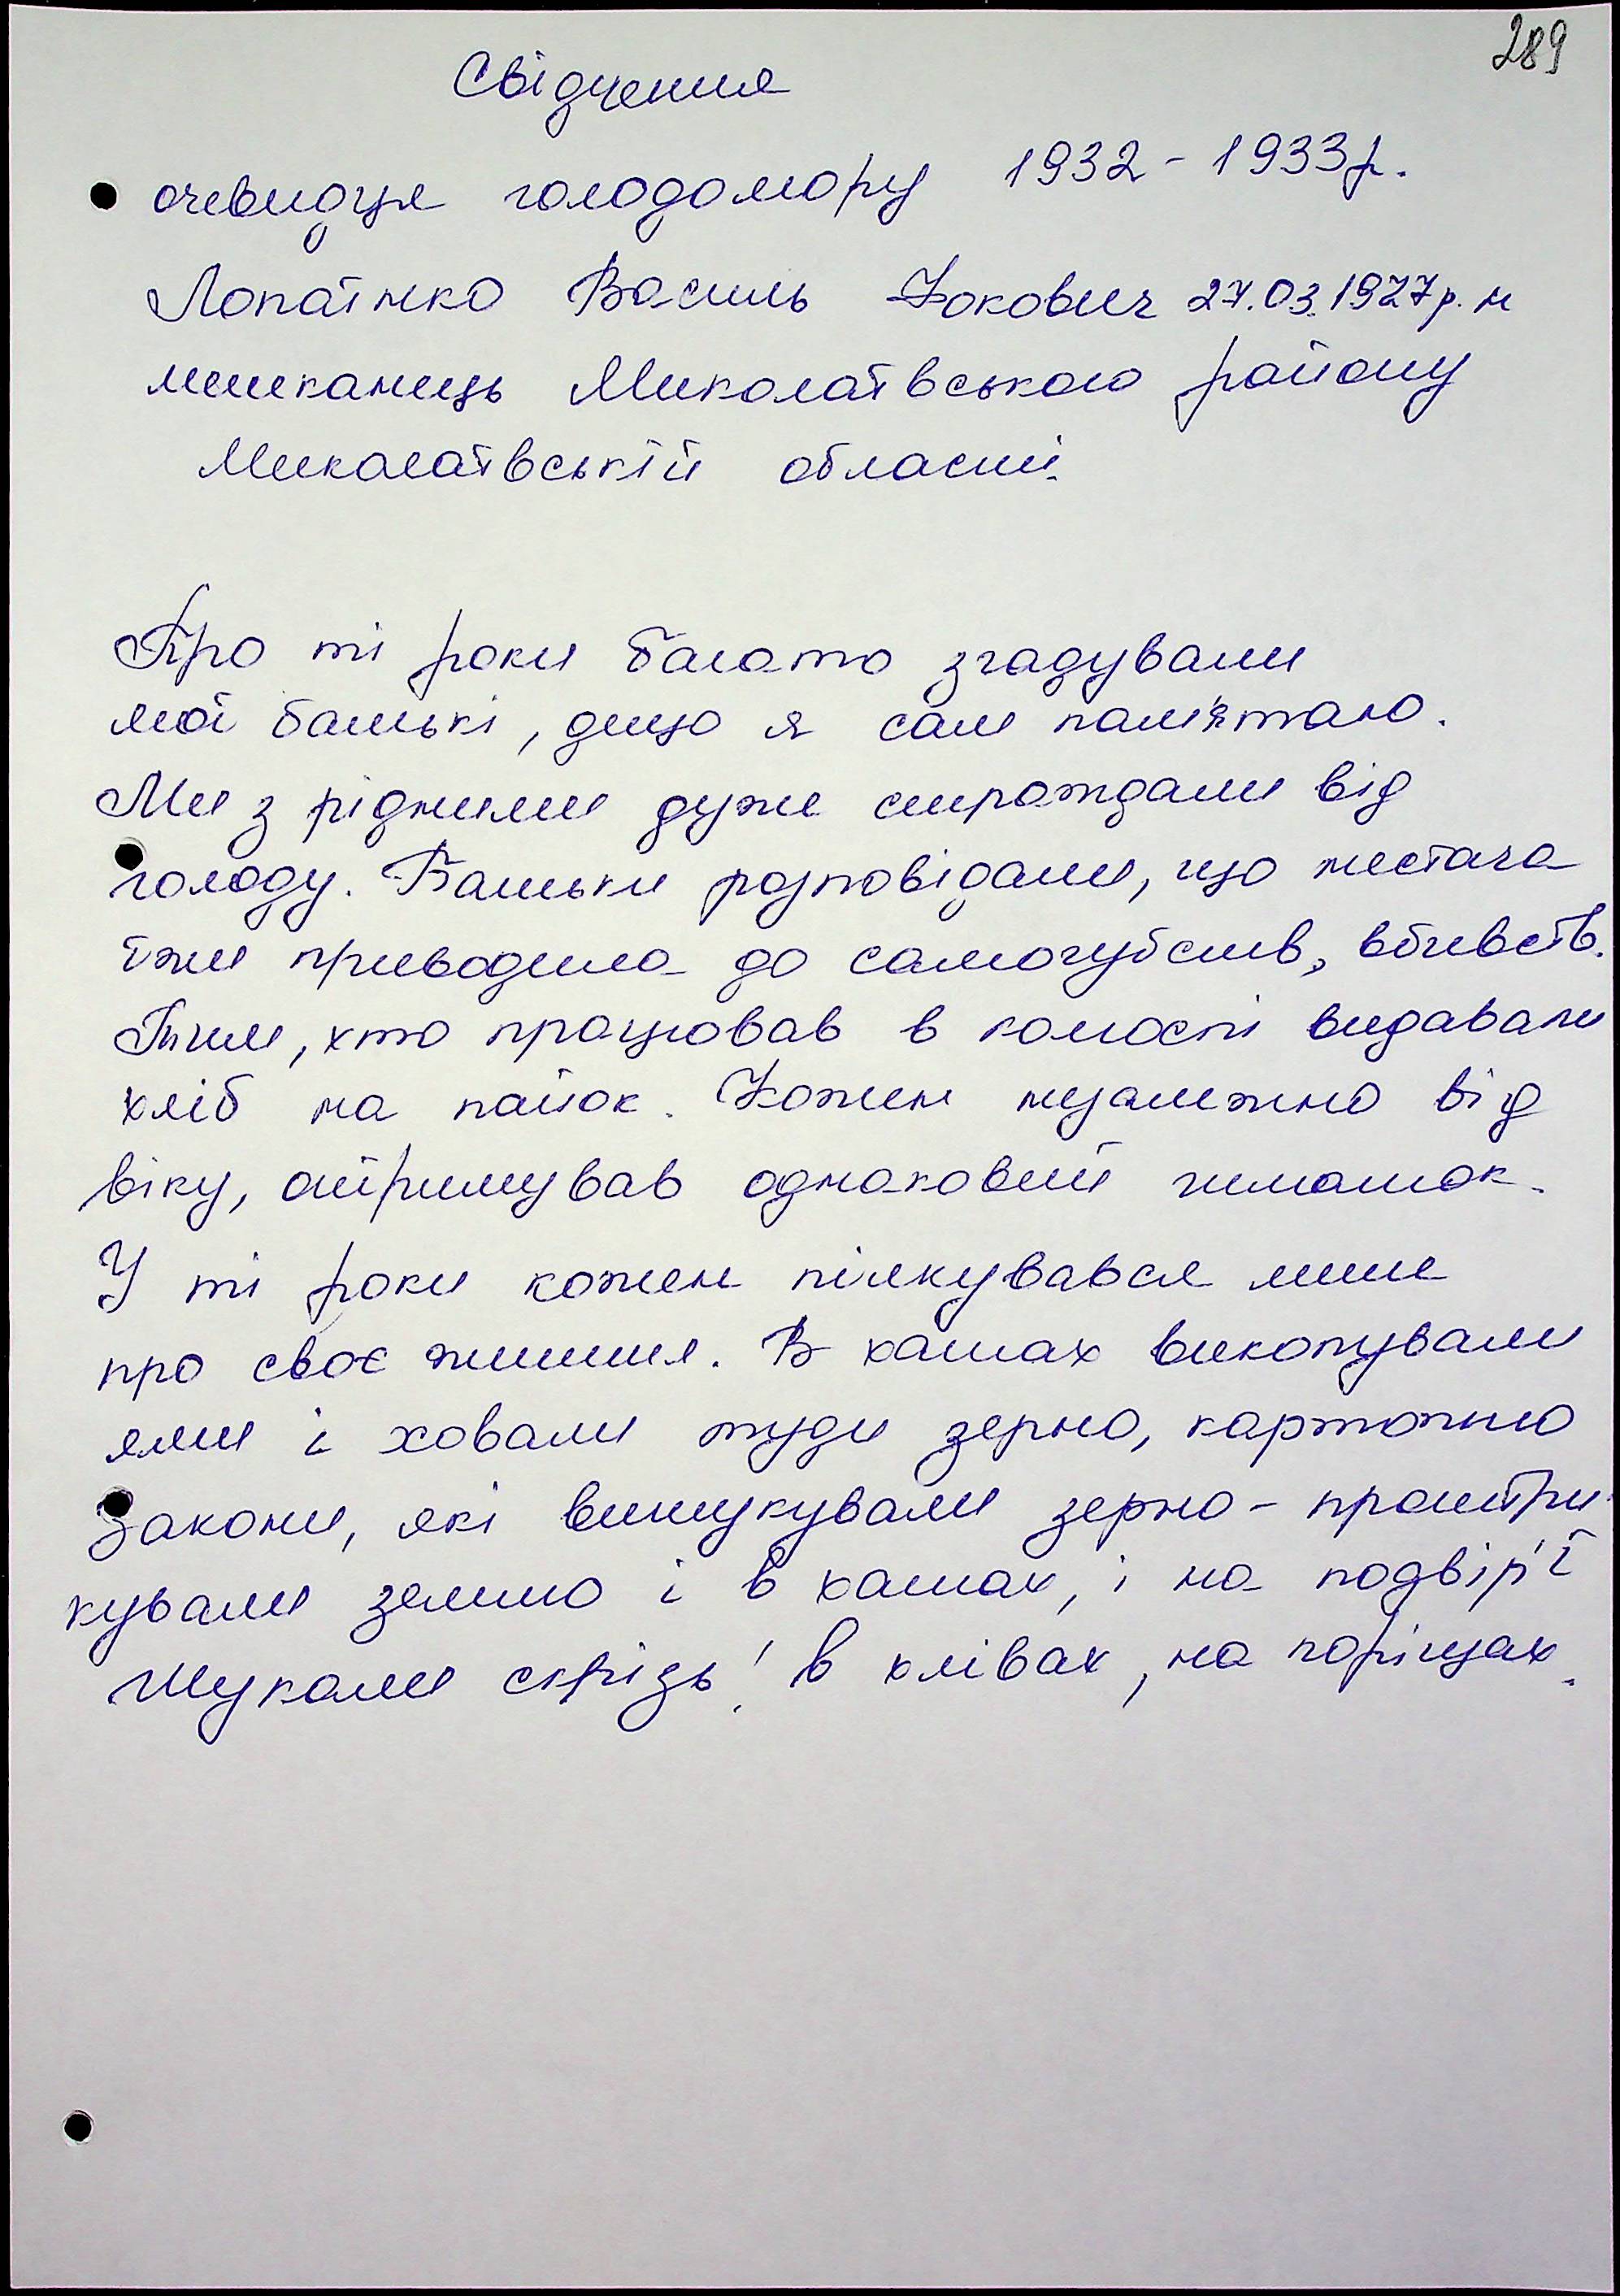 289
Свідчення
очевидця голодомору 1932 - 1933р.
Лопатнко Василь Йокович 27.03.1927р. н
мешканець Миколаївського району
Миколаївській області.
Про ті роки багато згадували
мої батькі, дещо я сам пам'ятаю.
Ми з рідними дуже страждали від
голоду. Батьки розповідали, що нестача
їжи приводила до самогубств, вбивств.
Тим, хто працював в колоспі видавали
хліб на пайок. Кожен незалежно від
віку, отримував однаковий шматок.
У ті роки кожен піклувався лише
про своє життя. В хатах викопували
ями і ховали туди зерно, картоплю
Закони, які вишукували зерно - проштри-
кували землю і в хатах, і на подвір'ї
Шукали скрізь! в хлівах, на горіщах.